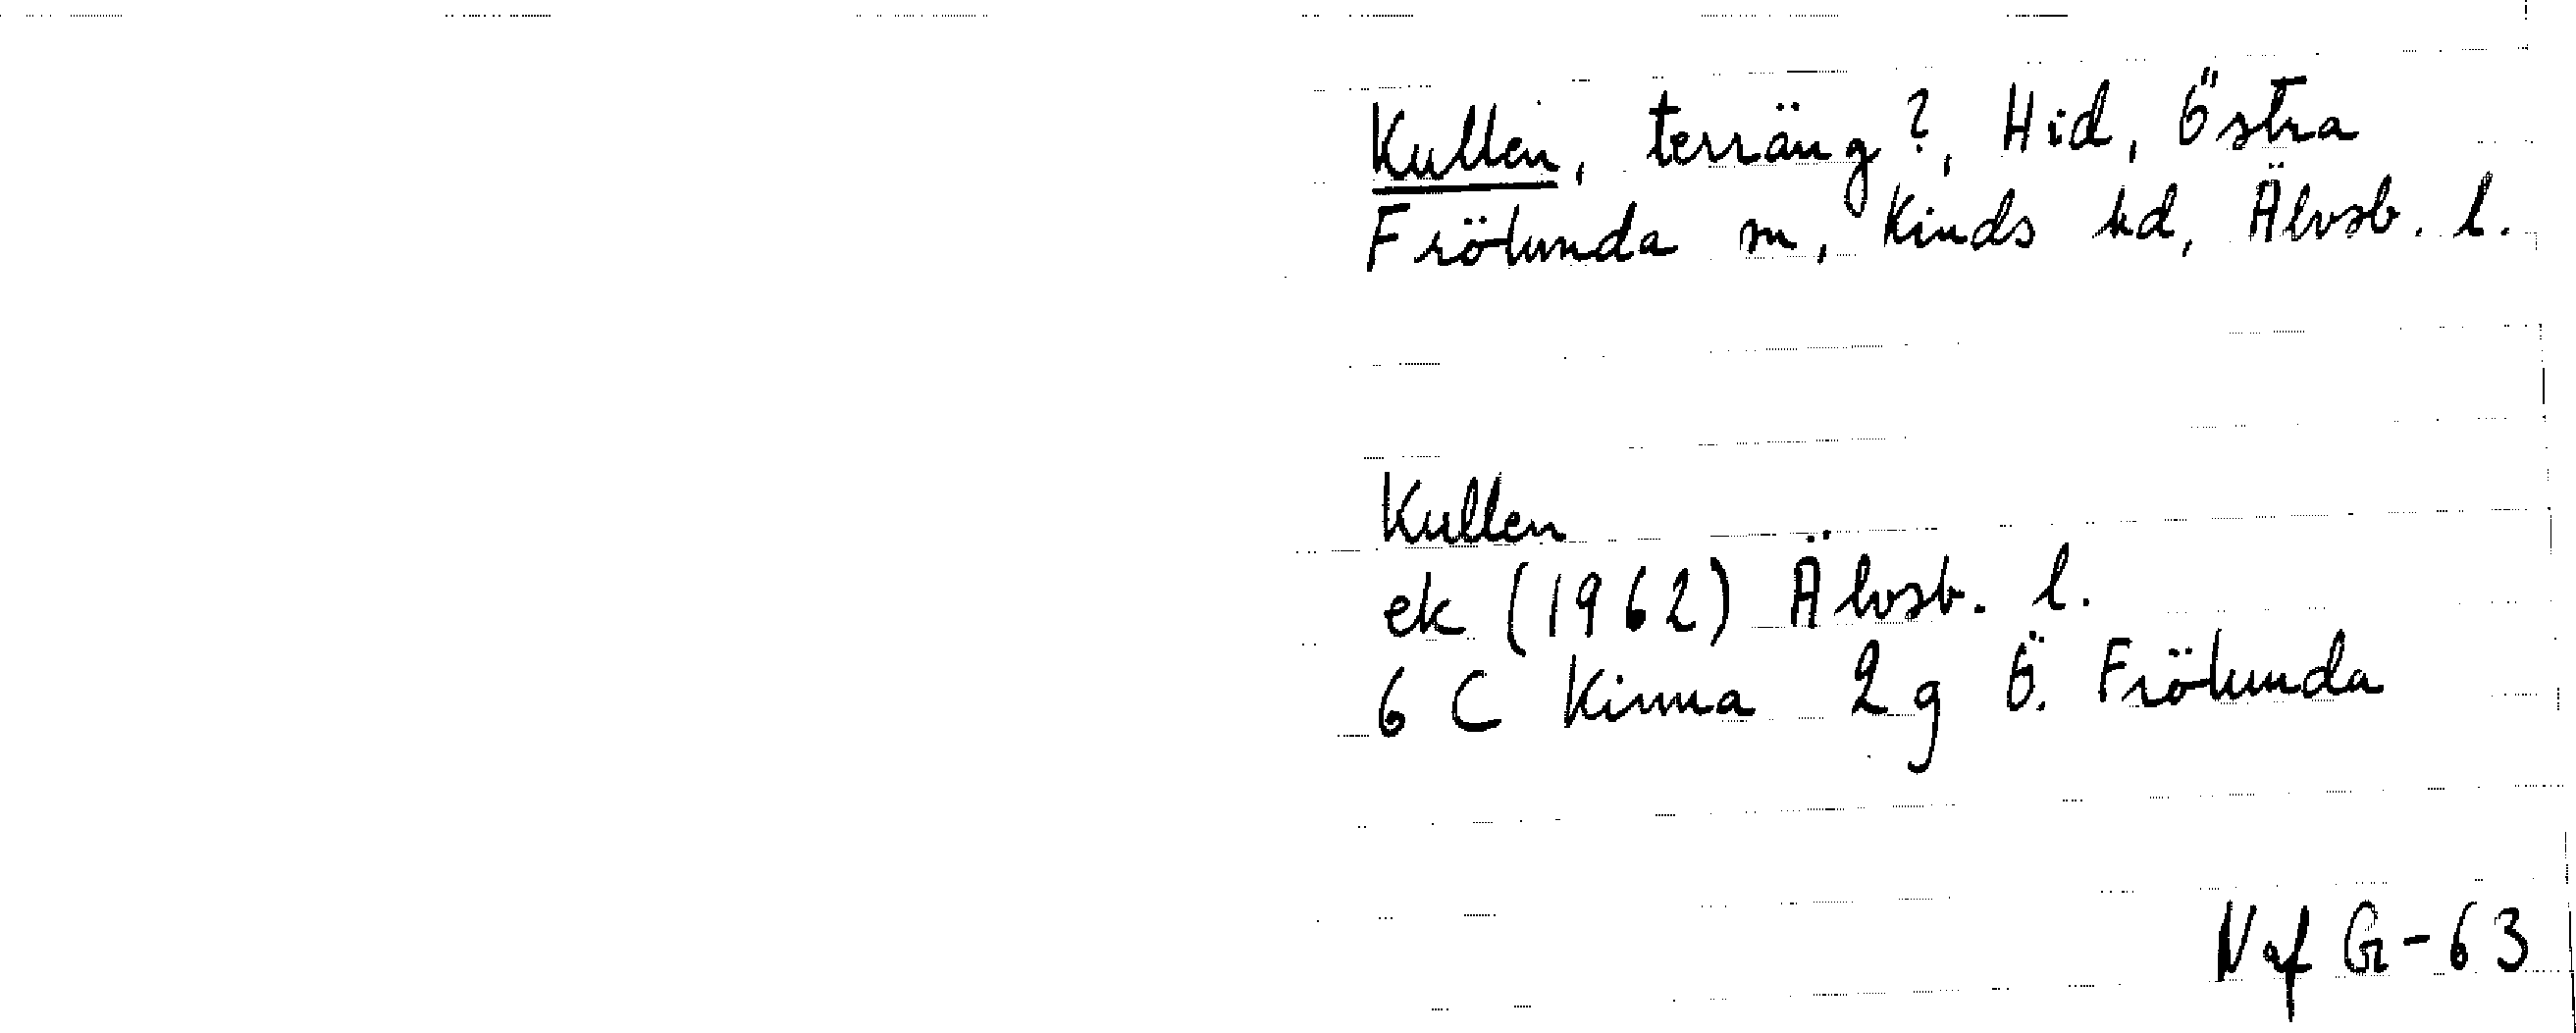 Kullen, terräng?, Hid, Östra
Frölunda sn, Kinds hd, Älvsb. l.
Kullen
ek (1962) Älvsb. l.
6 C Kinna 2g Ö. Frölunda
Naf G-63